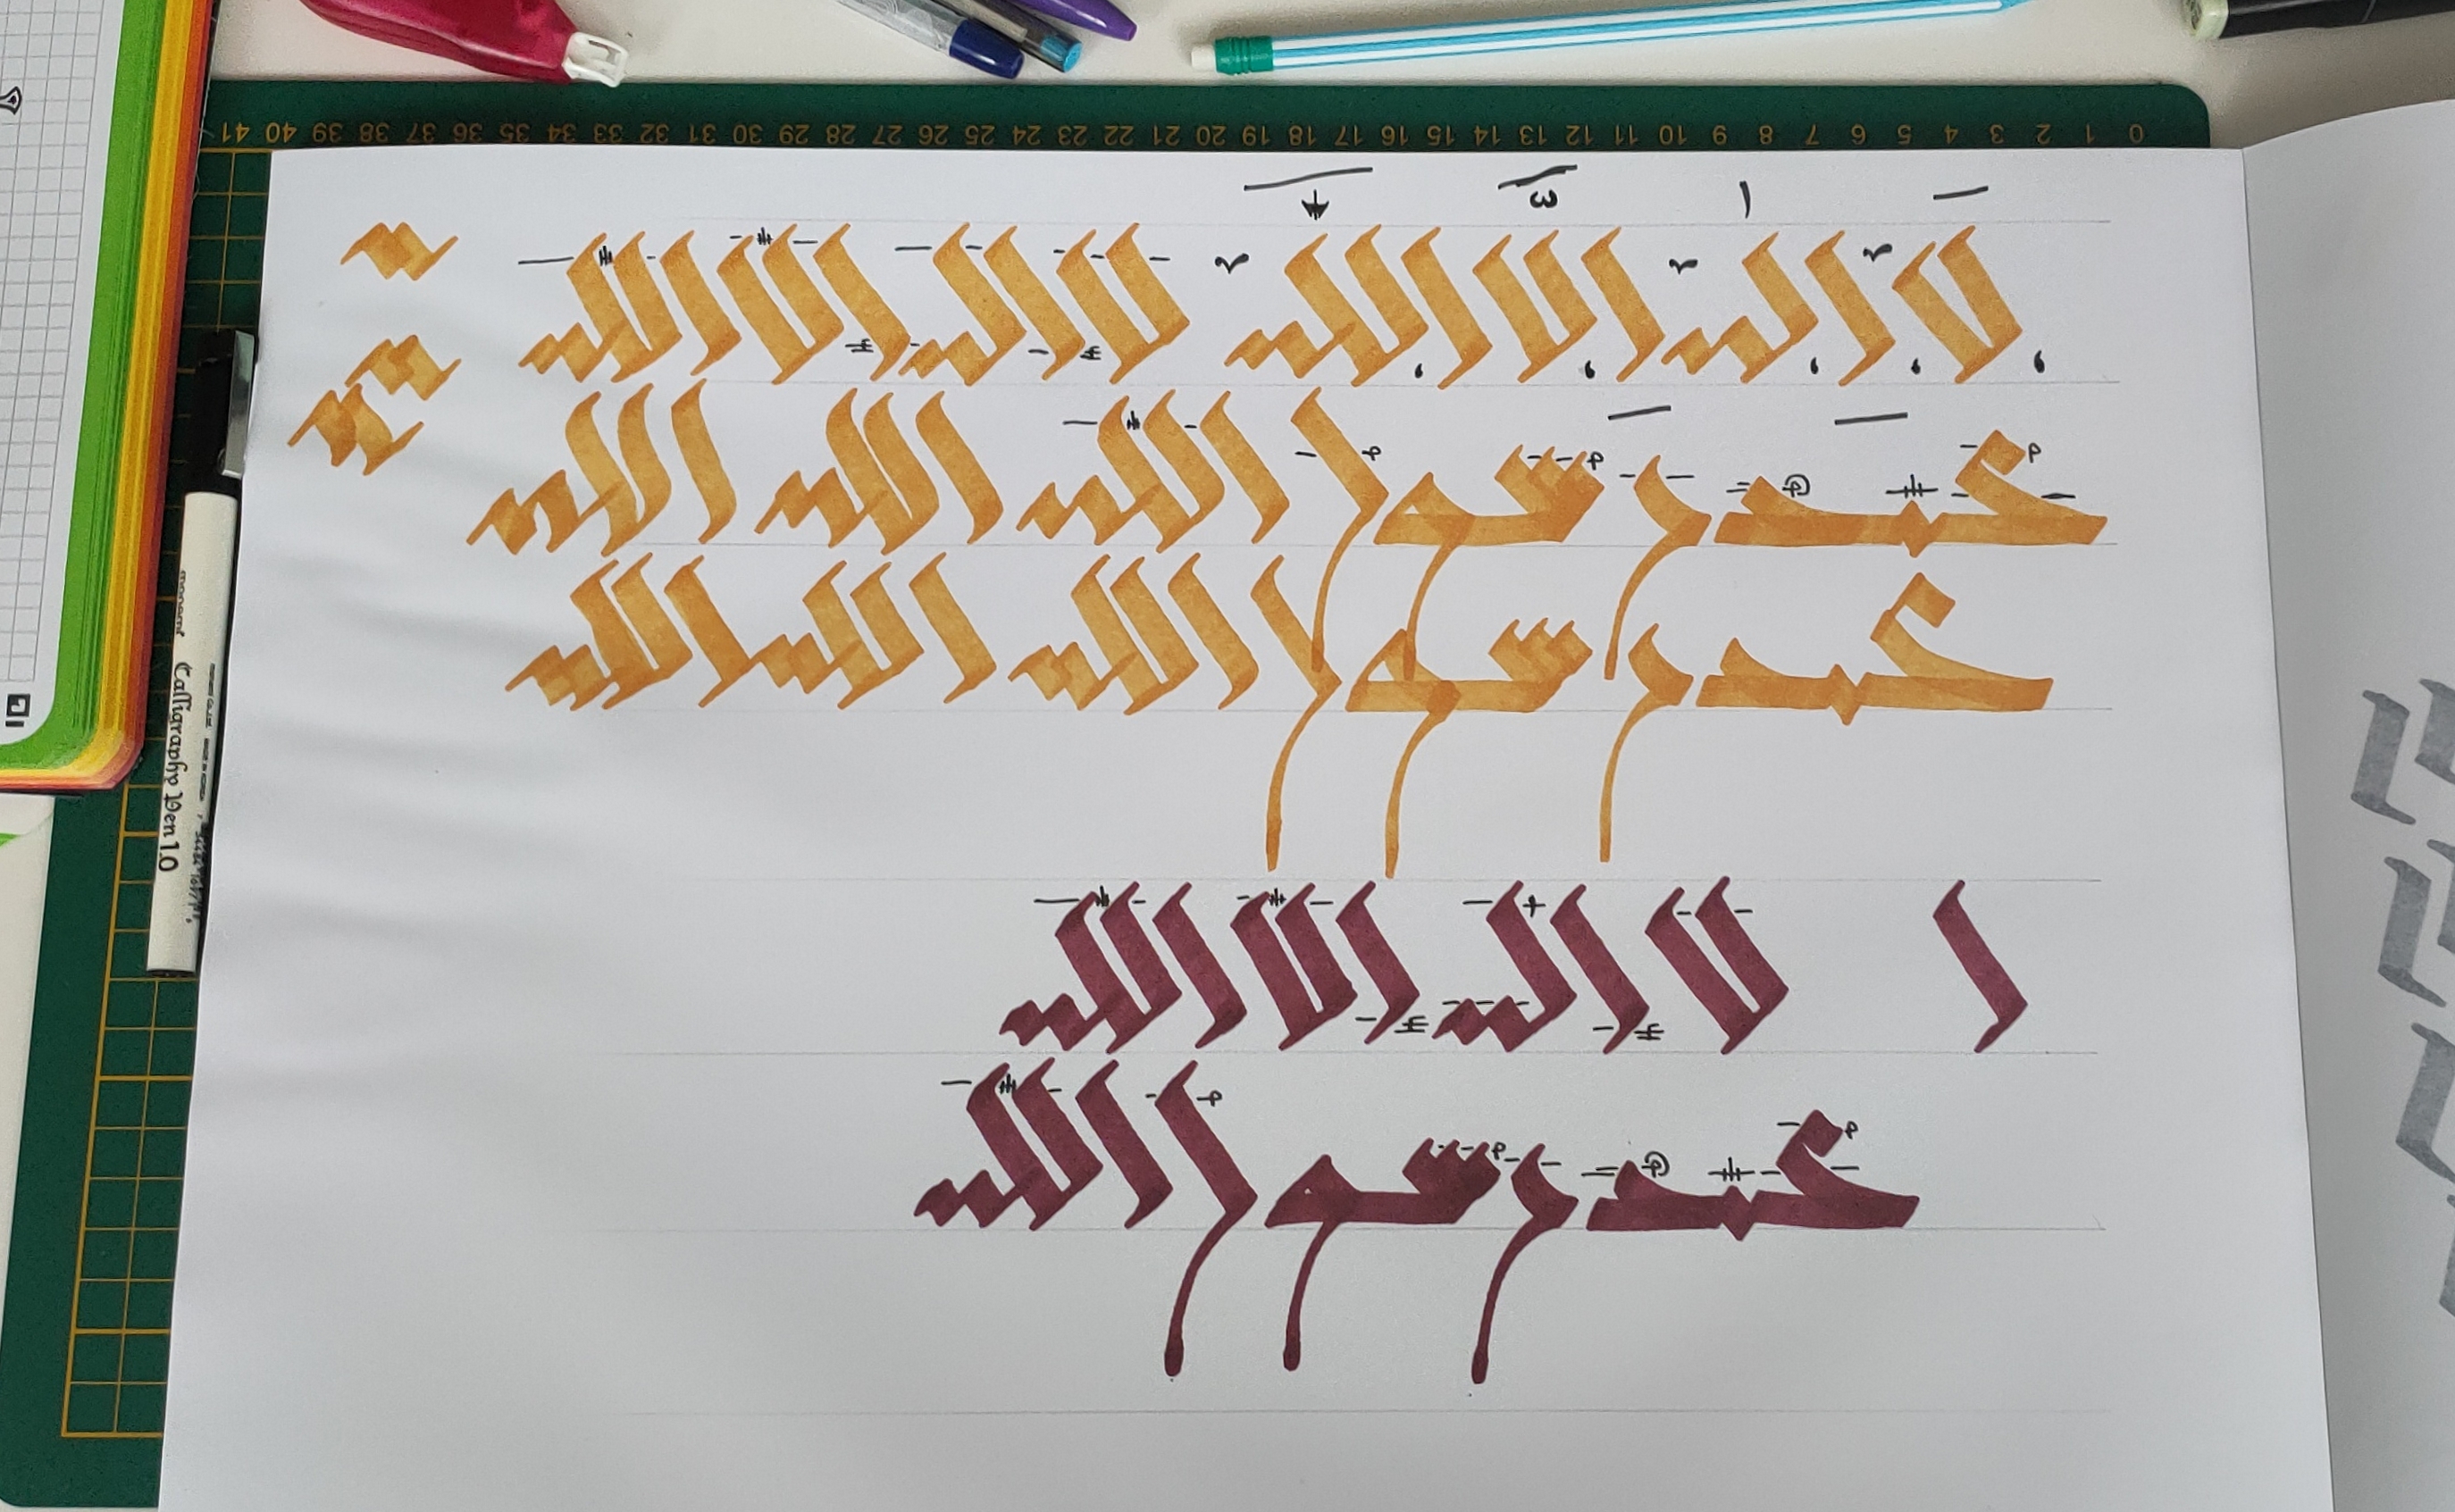 0 1 2 3 4 5 6 7 8 9 10 11 12 13 14 15 16 17 18 19 20 21 22 23 24 25 26 27 28 29 30 31 32 33 34 35 36 37 38 39 40 41
لا اله الا الله لا اله الا الله
محمد رسول الله الله الله
محمد رسول الله الله الله
ا لا اله الا الله
محمد رسول الله
Calligraphy Pen 1.0